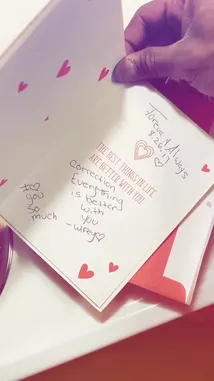 Forever & Always
8.26.17
THE BEST THINGS IN LIFE
ARE BETTER WITH YOU
Correction
Everything
is better
with
you
you
so
much